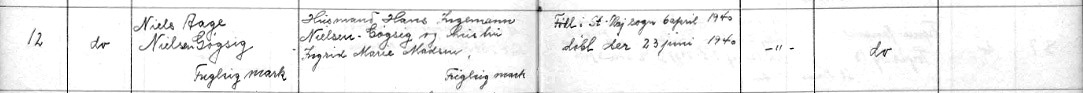 12
do
Niels Aage
Nielsen Gøgsig
Fuglsig mark
Husmand Hans Ingemann
Nielsen-Gøgsig og Hustru
Ingrid Marie Madsen,
Fuglsig mark
Født i St Haj sogn 6 april 1940
døbt der 23 juni 1940
-"-
do